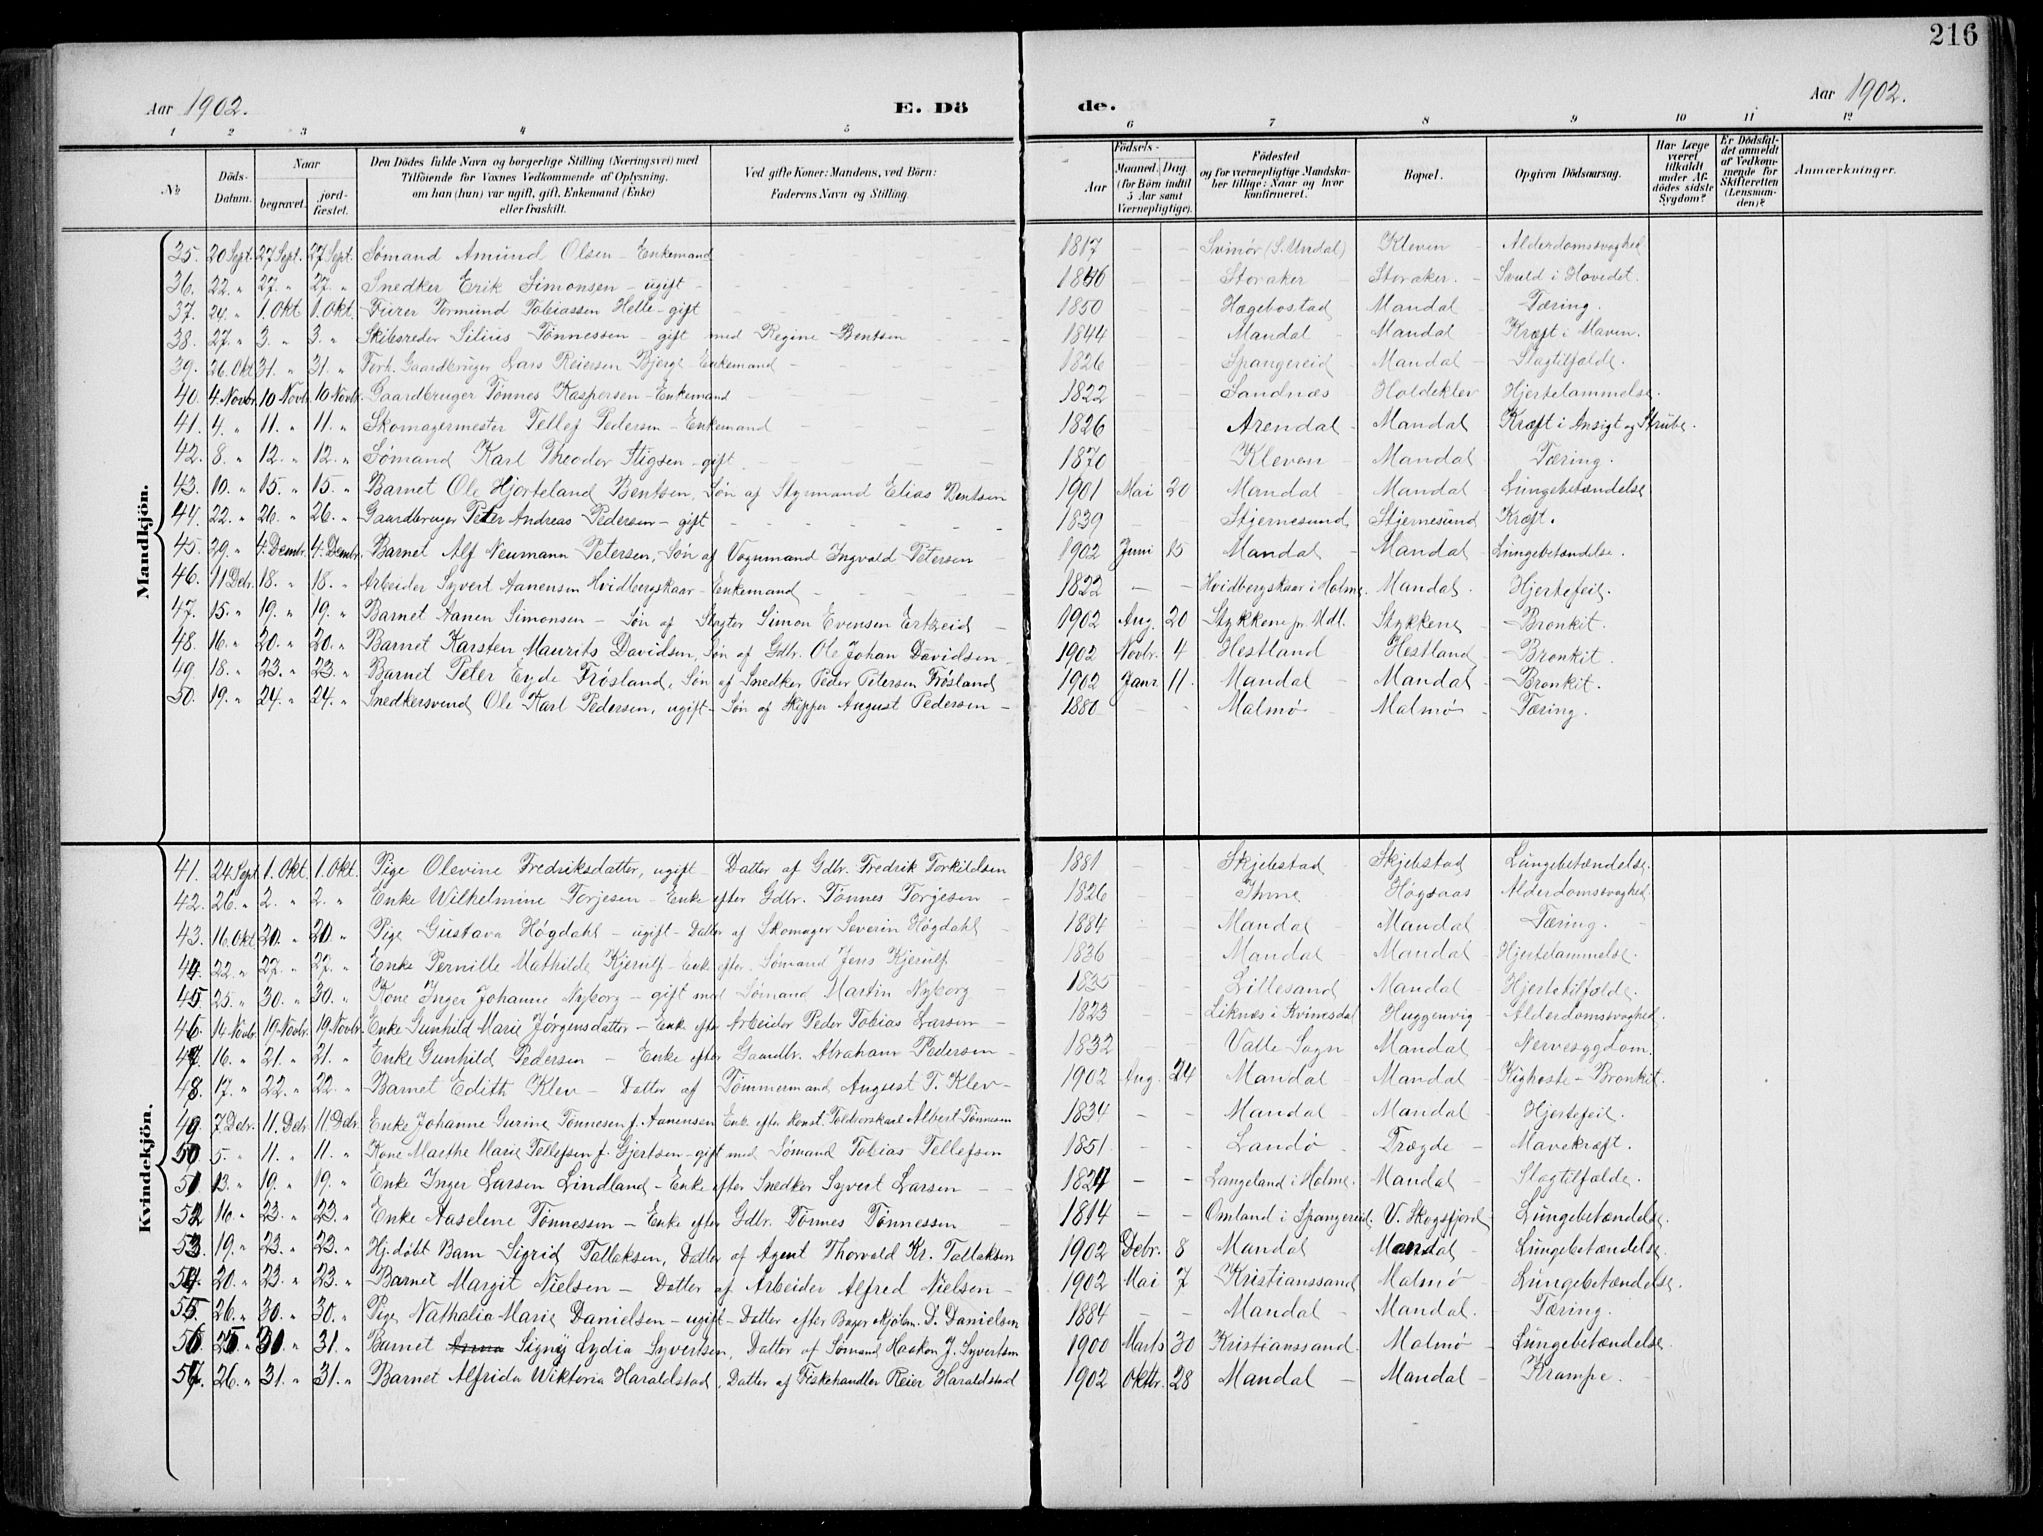 216
Aar 1902. E. Dö de. Aar 1902.
1 2 3 4 5 6 7 8 9 10 11 12
№ Döds-Datum. Naar begravet. jordfæstet. Den Dödes fulde Navn og borgerlige Stilling (Næringsvei) med Tilföiende for Voxnes Vedkommende af Oplysning, om han (hun) var ugift, gift, Enkemand (Enke) eller fraskilt. Ved gifte Koner: Mandens, ved Börn: Faderens Navn og Stilling. Födsels- Aar Maaned. Dag. (for Börn indtil 5 Aar samt Værnepligtige). Födested og for værnepligtige Mandskaber tillige: Naar og hvor konfirmeret. Bopæl. Opgiven Dödsaarsag. Har Læge været tilkaldt under Afdödes sidste Sygdom? Er Dödsfaldet anmeldt af Vedkommende for Skifteretten (Lensmanden)? Anmærkninger.
Mandkjön.
35. 20 Sept. 27 Sept. 27 Sept. Sømand Amund Olsen - Enkemand - - - 1817 - - Svinør (S. Undal) Kleven - Alderdomssvaghed
36. 22. " 27. " 27. " Snedker Erik Simonsen - ugift - - - 1846 - - Storaker - Storaker. - Svuld i Hovedet.
37. 24. " 1. Okt 1. Okt. Furer Tormund Tobiassen Helle - gift - - - 1850 - - Hægebostad Mandal - Tæring.
38. 27. " 3. " 3. " Skibsreder Silius Tønnessen - gift med Regine Bentsen - - 1844 - - Mandal - Mandal - Kræft i Maven.
39. 26. Okt 31. " 31. " Forh. Gaardbruger Lars Reiersen Bjerge Enkemand - - - 1826 - - Spangereid - Mandal - Slagtilfælde.
40. 4 Novbr. 10 Novbr. 10 Novbr. Gaardbruger Tønnes Kaspersen - Enkemand - - - 1822 - - Sandnæs - Holdeklev Hjertelammelse.
41. 4. " 11. " 11. " Skomagermester Tellef Pedersen - Enkemand - - - 1826 - - Arendal - Mandal - Kræft i Ansigt og Strube.
42. 8. " 12. " 12. " Sømand Karl Theodor Stigsen - gift. - - - 1870 - - Kleven Mandal - Tæring.
43. 10. " 15. " 15. " Barnet Ole Hjorteland Bentsen, Søn af Styrmand Elias Bentsen 1901 Mai 20 Mandal - Mandal - Lungebetændelse
44. 22. " 26. " 26. " Gaardbruger Peter Andreas Pedersen - gift - - - 1839 - - Stjernesund Stjernesund Kræft.
45. 29. " 4. Dembr. 4. Dembr. Barnet Alf Neumann Petersen, Søn af Vognmand Ingvald Petersen - 1902 Juni 15 Mandal - Mandal - Lungebetændelse.
46. 11 Debr. 18. " 18. " Arbeider Syvert Aanensen Hvidbergskaar - Enkemand - - - 1822 - - Hvidbergskaar i Holme. Mandal. - Hjertefeil.
47. 15. " 19. " 19. " Barnet Aanen Simonsen - Søn af Slagter Simon Evensen Ertzeid - 1902 Aug. 20 Stykkene pr Mdl. Stykkene - Bronkit.
48. 16. " 20. " 20. " Barnet Karsten Maurits Davidsen, Søn af Gdbr. Ole Johan Davidsen - 1902 Novbr. 4 Hestland Hestland - Bronkit.
49. 18. " 23. " 23. " Barnet Peter Eyde Frøsland, Søn af Snedker Peder Petersen Frøsland 1902 Janr. 11. Mandal - Mandal - Bronkit.
50. 19. " 24. " 24. " Snedkersvend Ole Karl Pedersen, ugift - Søn af Skipper August Pedersen - 1880 - - Malmø - Malmø - Tæring.
Kvindekjön.
41. 24 Sept. 1. Okt. 1. Okt. Pige Olevine Fredriksdatter, ugift - Datter af Gdbr. Fredrik Torkildsen 1881 - - Skjebstad Skjebstad Lungebetændelse.
42. 26. " 2. " 2. " Enke Wilhelmine Torjesen - Enke efter Gdbr. Tønnes Torgesen - 1826 - - Ihme Høgsaas Alderdomssvaghed.
43. 16. Okt. 20. " 20 " Pige Gustava Høgdahl - ugift - Datter af Skomager Severin Høgdahl - 1884 - - Mandal - Mandal - Tæring. -
44. 22. " 27. " 27. " Enke Pernille Mathilde Kjerulf - Enke efter Sømand Jens Kjerulf - 1836 - - Mandal - Mandal - Hjertelammelse.
45 25. " 30. " 30. " Kone Inger Johanne Nyborg - gift med Sømand Martin Nyborg - 1835 - - Lillesand Mandal - Hjertetilfælde.
46. 14 Novbr. 19 Novbr. 19 Novbr. Enke Gunhild Marie Jørgensdatter - Enke efter Arbeider Peder Tobias Larsen - 1823 - - Liknes i Kvinesdal Huggenvig - Alderdomssvaghed.
47. 16. " 21. " 21. " Enke Gunhild Pedersen - Enke efter Gaardbr. Abraham Pedersen - 1832 - - Valle Sogn Mandal - Nervesygdom.
48. 17. " 22. " 22. " Barnet Edith Klev - Datter af Tømmermand August T. Klev - 1902 Aug. 24 Mandal - Mandal - Kighoste - Bronkit.
49. 7 Debr. 11. Debr 11 Debr. Enke Johanne Gurine Tønnesen f. Aanensen Enke efter konst. Tolderskarl Albert Tønnesen 1834 - - Mandal - Mandal - Hjertefeil.
50 5. " 11. " 11. " Kone Marthe Marie Tellefsen f. Gjertsen - gift med Sømand Tobias Tellefsen 1851 - - Landø - Tregde - Mavekræft.
51 13. " 19. " 19. " Enke Inger Larsen Lindland - Enke efter Snedker Syvert Larsen - - 1824 - - Langeland i Holme. Mandal - Slagtilfælde.
52 16. " 23. " 23. " Enke Aaselene Tønnessen - Enke efter Gdbr. Tønnes Tønnessen - 1814 - - Omland i Spangereid. V. Skogsfjord Lungebetændelse.
53. 19. " 23. " 23. " Hj. døbt Barn Sigrid Tallaksen, Datter af Agent Thorvald Kr. Tallaksen 1902 Debr. 8 Mandal Mandal - Lungebetændelse
54. 20. " 23. " 23. " Barnet Margit Nielsen - Datter af Arbeider Alfred Nielsen - 1902 Mai 7 Kristianssand Malmø - Lungebetændelse.
55. 26. " 30. " 30. " Pige Nathalia Marie Danielsen - ugift - Datter efter Bager D. Danielsen 1884 - - Mandal - Mandal. - Tæring.
56 25 " 31 " 31. " Barnet Anna Signy Lydia Syvertsen, Datter af Sømand Haakon J. Syvertsen 1900 Marts 30 Kristianssand. Malmø - Lungebetændelse.
57. 26. " 31. " 31. " Barnet Alfrida Wiktoria Haraldstad, Datter af Fiskehandler Reier Haraldstad 1902 Oktbr. 28 Mandal - Mandal - Krampe. -